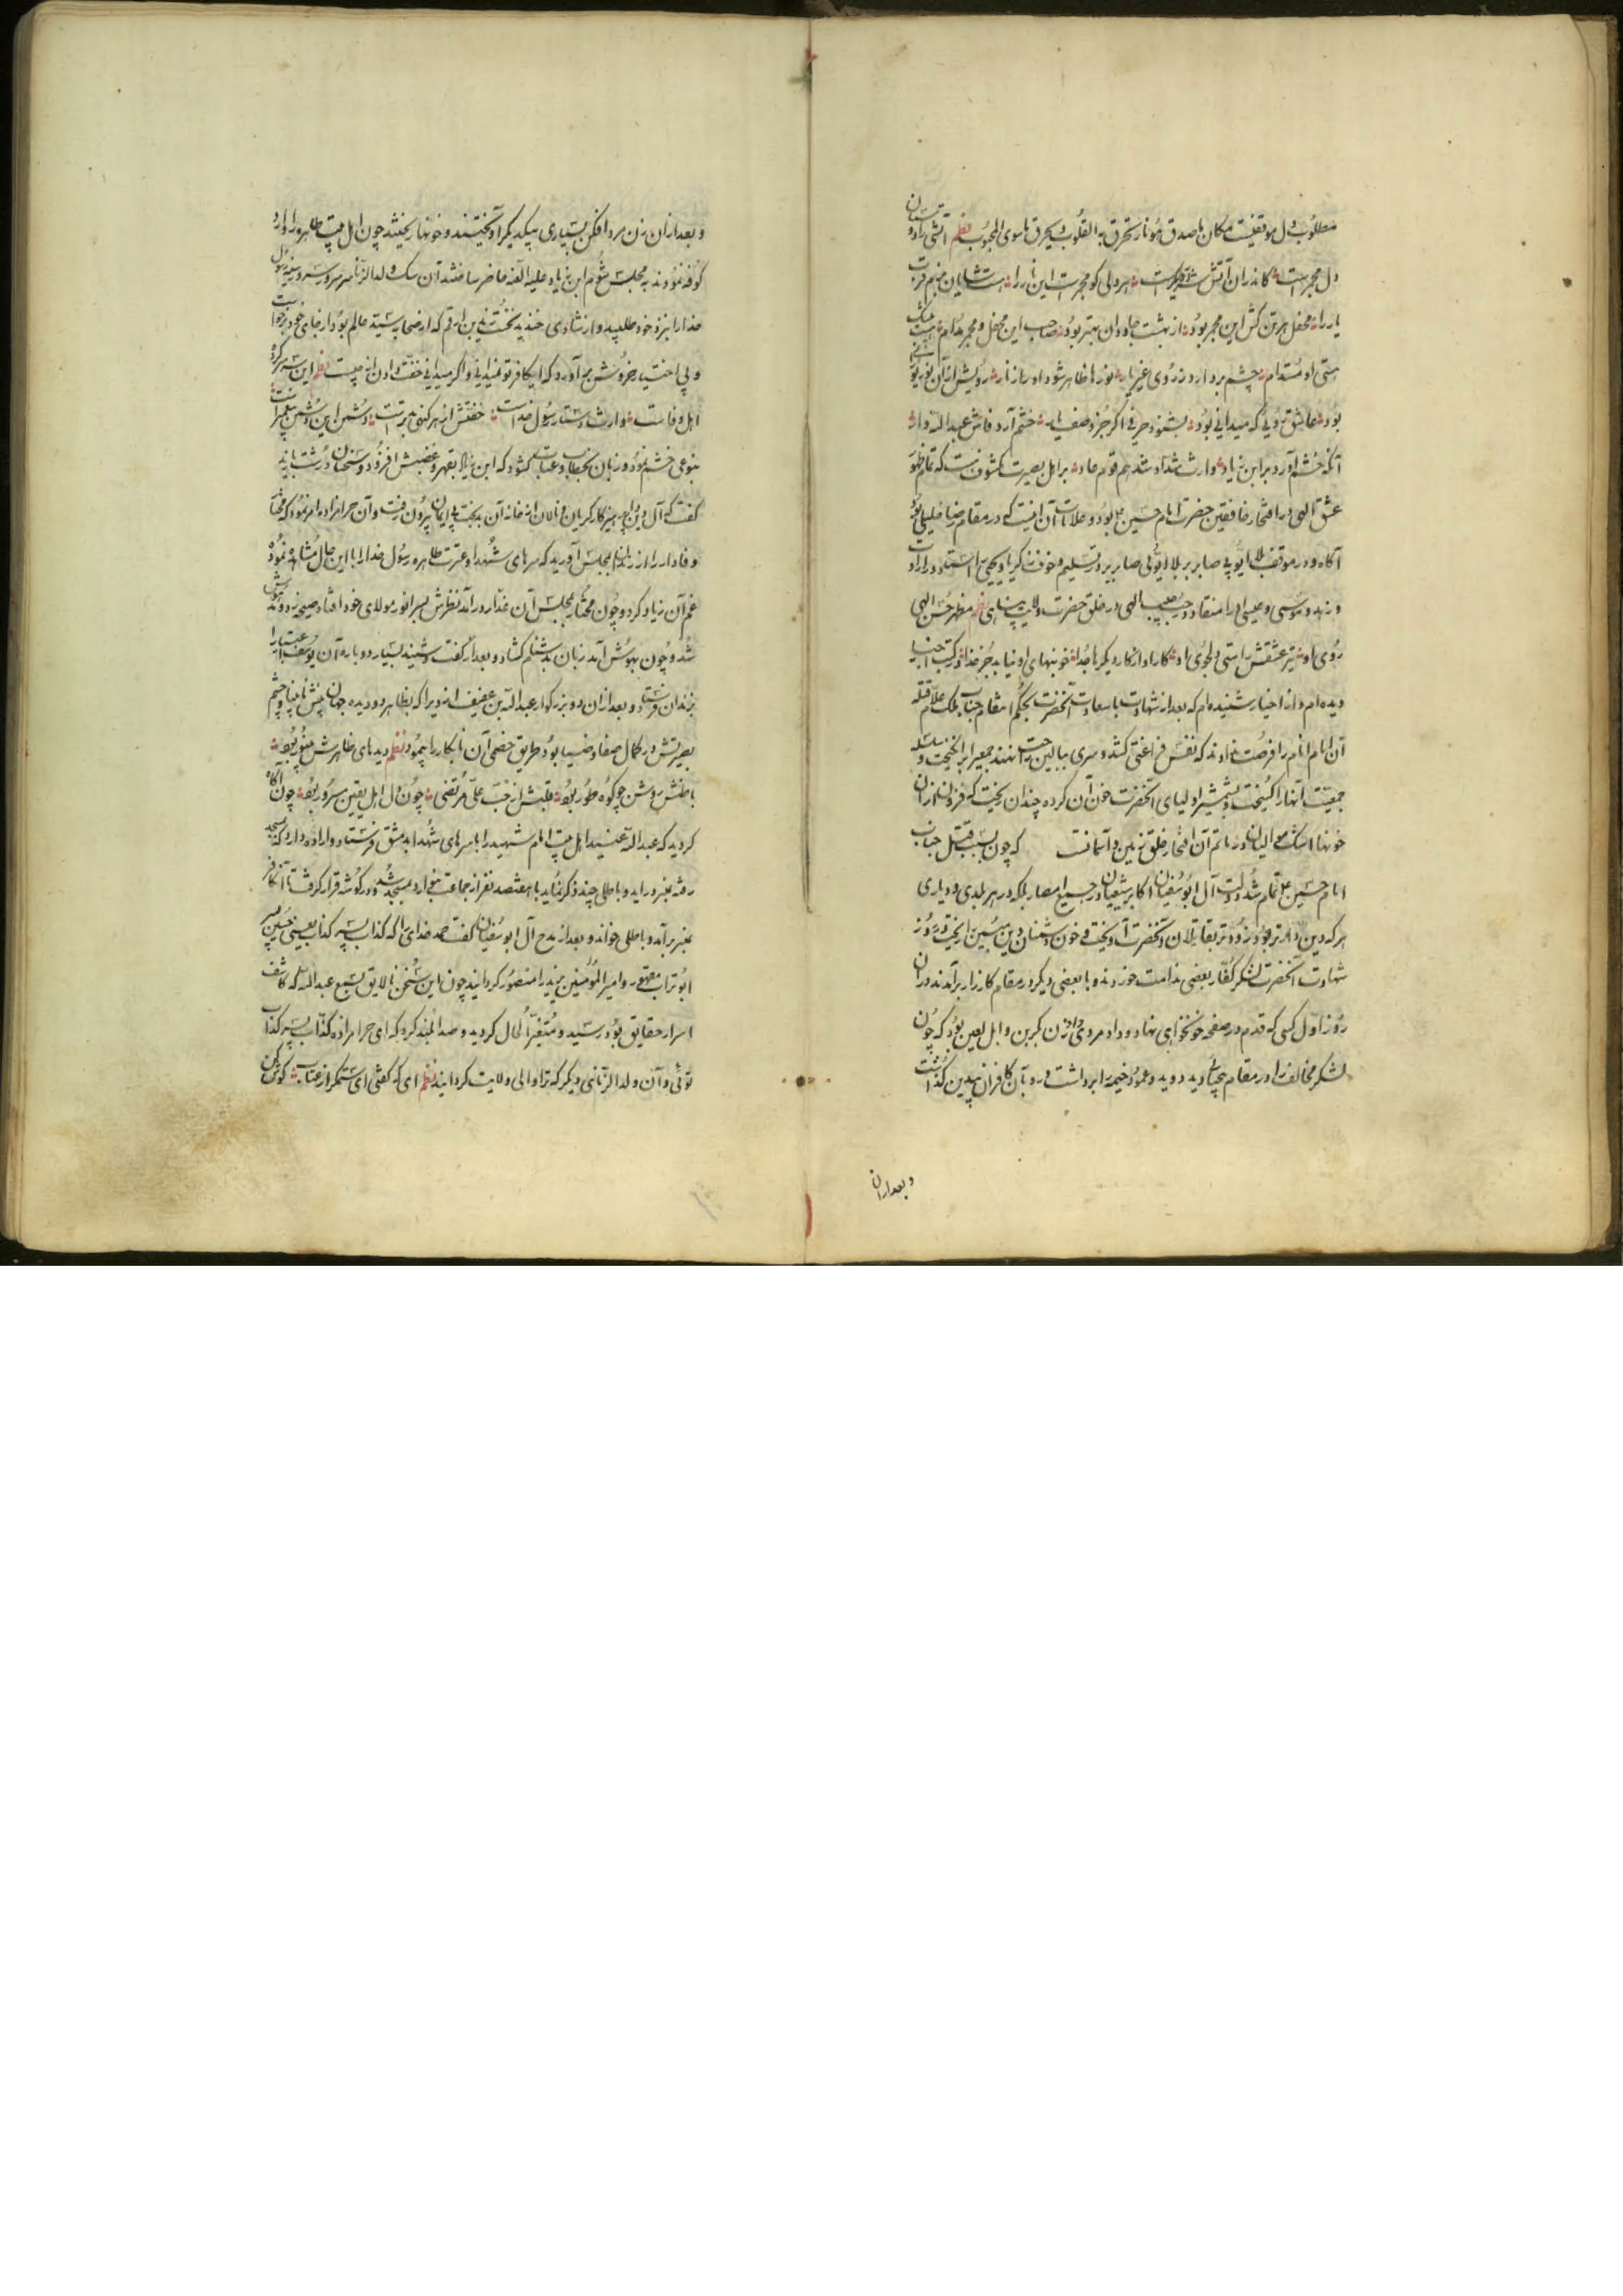 مطلوب دل موقنیست مکان ما صدق هو نار تحرق به القلوب یحرق ما سوی المحبوب نظم آتشی زاد و
دل مجمر است کاندران آتش هر دلی کو مجمر است این نار را هست شایان بزم قرب
یار را محفل هر تن کش این مجمر بود از بهشت جاودان بهتر بود صاحب این محفل و مجمر مدام
هستی او مستدام چشم بردارد ز روی غیر یار نورها ظاهر شود او را ز نار رویش از آن نور
بود عاشق رویی که میدانی بود بشنود حرفی اگر جز وصف یار خشم آرد فاش عبدالله وار
آنکه خشم آورد بر ابن زیاد وارث شداد شد هم قوم عاد بر اهل بصیرت مکشوفست که تمام ظهور
عشق الهی در افتخار خافقین حضرت امام حسین ع بود و علامات آن اینست که در مقام رضا خلیلی بود
آگاه و در موقف بلا ایوبی صابر بر بلا ایوبی صابر بر در تسلیم و خوف زکریا و یحیی را استاد در ارادت
و زهد و موسی و عیسی او را منقاد و در حب حبیب الهی در خلق حضرت ولایت پناهی نظم مظهر حسن الهی
روی او تیر عشقش راستی دلجوی او کار او از کار دیگرها جدا خونبهای او نیاید جز خدا در کتب
دیده‌ام و از اخیار شنیده‌ام که بعد از شهادت با سعادت آنحضرت بحکم انتقام جناب ملک علام قتله
آن امام انام را فرصت ندادند که نفس فراغتی کشند و سری ببالین راحت نهند جمعی را برانگیخت و
جمعیت آنها را گسیخت و بشمشیر اولیای آنحضرت خون آن گروه چندان ریخت که فزون از آن
خونها اشک موالیان در ماتم آن افتخار خلق زمین و آسمانست که چون بسبب قتل جناب
امام حسین ع تمام شد دولت آل ابوسفیان اکابر شیعیان در جمیع امصار بلکه در هر بلدی و دیاری
هر که دین دارتر بود زودتر بقاتلان آنحضرت آویخت و خون دشمنان دین مبین را ریخت و در روز
شهادت آنحضرت لشکر کفار بعضی ندامت خوردند و با بعضی دیگر در مقام کارزار برآمدند و در آن
روز اول کسی که قدم در صفحه خونخواهی نهاد و داد مردی داد زن بکر بن وایل لعین بود که چون
لشکر مخالف را در مقام بیحیائی دید دوید و عمود خیمه را برداشت و رو به آن کافران بیدین گذاشت
و بعد از آن
و بعد از آن زن مرد افکن بسیاری بیکدیگر آویختند و خونها ریختند چون اهل بیت طاهره را وارد
کوفه نمودند به مجلس شوم ابن زیاد علیه اللعنه حاضر ساختند آن سگ ولد الزنا سر سرور سینه رسول
خدا را بنزد خود طلبید و از شادی خندید نخست زید بن ارقم که از صحابه سید عالم بود از جای خود برخواست
و بی اختیار خروش برآورد که ای کافر تو نمیدانی و اگر میدانی خفت دادن از چیست نظم این سر سرکرده
اهل وفاست وارث دستار رسول خداست خفتش از هر گنهی برترست دشمن این دشمن پیغمبرست
بنوعی خشم نمود و زبان بخطاب و عتاب گشود که ابن زیاد بقهر و غضبش افزود و سخنان درشت باید
گفت که آل وین پرهیزکار گریان و نالان از خانه آن بدبخت بی ایمان بیرون رفت و آن حرامزاده امر نمود که مختار
وفادار را از زندان بمجلس آورید که سرهای شهدا و عترت طاهره رسول خدا را با این حال مشاهده نمود
غم آن زیاد گردد و چون مختار بمجلس آن غدار درآمد نظرش بسر انور مولای خود افتاد صیحه زد و بیهوش
شد و چون بهوش آمد زبان بدشنام گشاد و بعد از گفت و شنید بسیار دوباره آن یوسف عهد را
بزندان فرستاد و بعد از آن دو بزرگوار عبدالله بن عفیف ازدی را که بظاهر دو دیده جهان بینش نابینا و چشم
بصیرتش در کمال صفا و ضیا بود طریق خصمی آن نابکار را پیمود نظم دیدهای ظاهرش مستور بود
باطنش روشن چو کوه طور بود قلبش از حب علی مرتضی چون دل اهل یقین مسرور بود چون آگاه
گردید که عبدالله عنید اهل بیت امام شهید را با سرهای شهدا بدمشق فرستاد و اراده دارد که بمسجد
رفته بمنبر درآید و باطلی چند ذکر نماید با هفتصد نفر از جماعت بنی ازد بمسجد شد و در گوشه قرار گرفت تا آن کافر
بمنبر برآمد و باطلی خواند و بعد از مدح آل ابوسفیان گفت حمد خدایرا که کذاب پسر کذاب یعنی حسین پسر
ابوتراب مقهور و امیرالمؤمنین یزید را منصور گردانید چون این سخن نالایق بسمع عبدالله که کاشف
اسرار حقایق بود رسید و متغیر الحال گردید و صدا بلند کرد که ای حرامزاده کذاب پسر کذاب
توئی و آن ولد الزنائی دیگر که ترا والی ولایت گردانید نظم ای که گفتی ای ستمگر از عتاب گوش کن